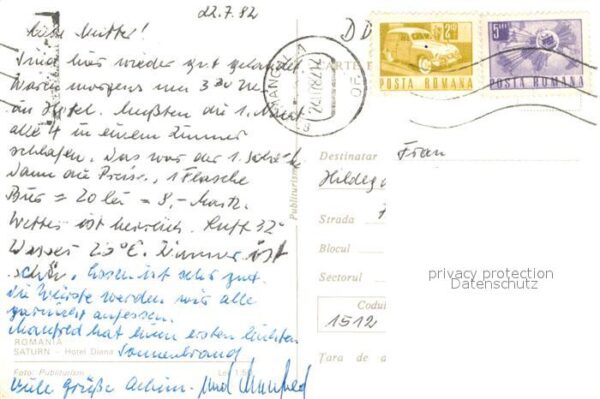 22.7.82
Liebe Mutter!
Sind hier wieder gut gelandet
Waren morgens um 3 30 Uhr
im Hotel. Mußten die 1. Nacht
alle 4 in einem Zimmer
schlafen. Das war der 1. Schock
Dann die Preise, 1 Flasche
Bier = 20 lei = 8,- Mark.
Wetter ist herrlich. Luft 32°
Wasser 20°C. Zimmer ist
schön. Essen ist sehr gut.
die Würste werden wir alle
garnicht aufessen.
Manfred hat einen ersten leichten
Sonnenbrand
Viele Grüße Achim. und Manfred
ROMANIA
SATURN - Hotel Diana
Foto: Publiturism
Lei 1,50
Publiturism
DD
CARTE P
MANGALIA
POSTA ROMANA
POSTA ROMANA
Frau
Destinatar
Hildeg
Strada
Blocul
Sectorul
Codul
1512
Țara de
privacy protection
Datenschutz